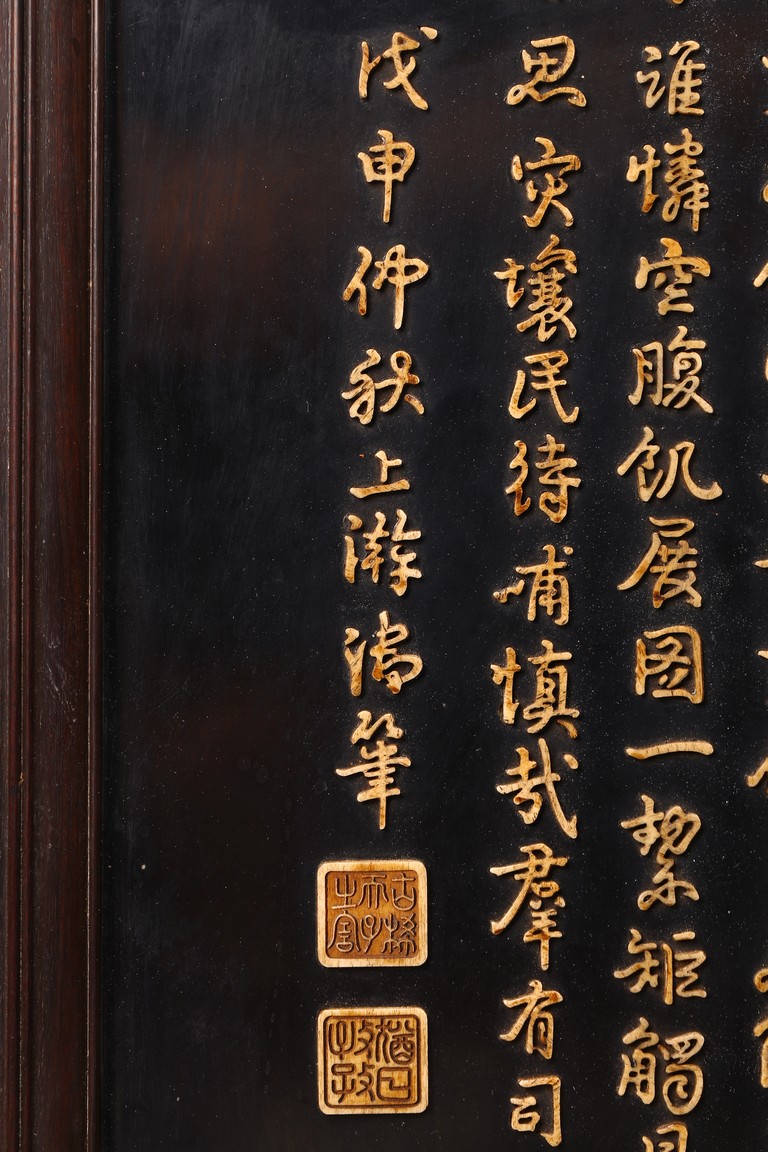 誰憐空腹飢展圖一絜矩觸目
思灾壤民待哺慎哉羣有司
戊申仲秋上澣御筆
古稀天子之寶
猶日孜孜